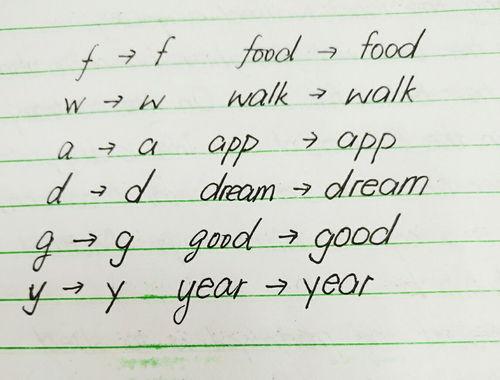 f → f food → food
w → w walk → walk
a → a app → app
d → d dream → dream
g → g good → good
y → y year → year